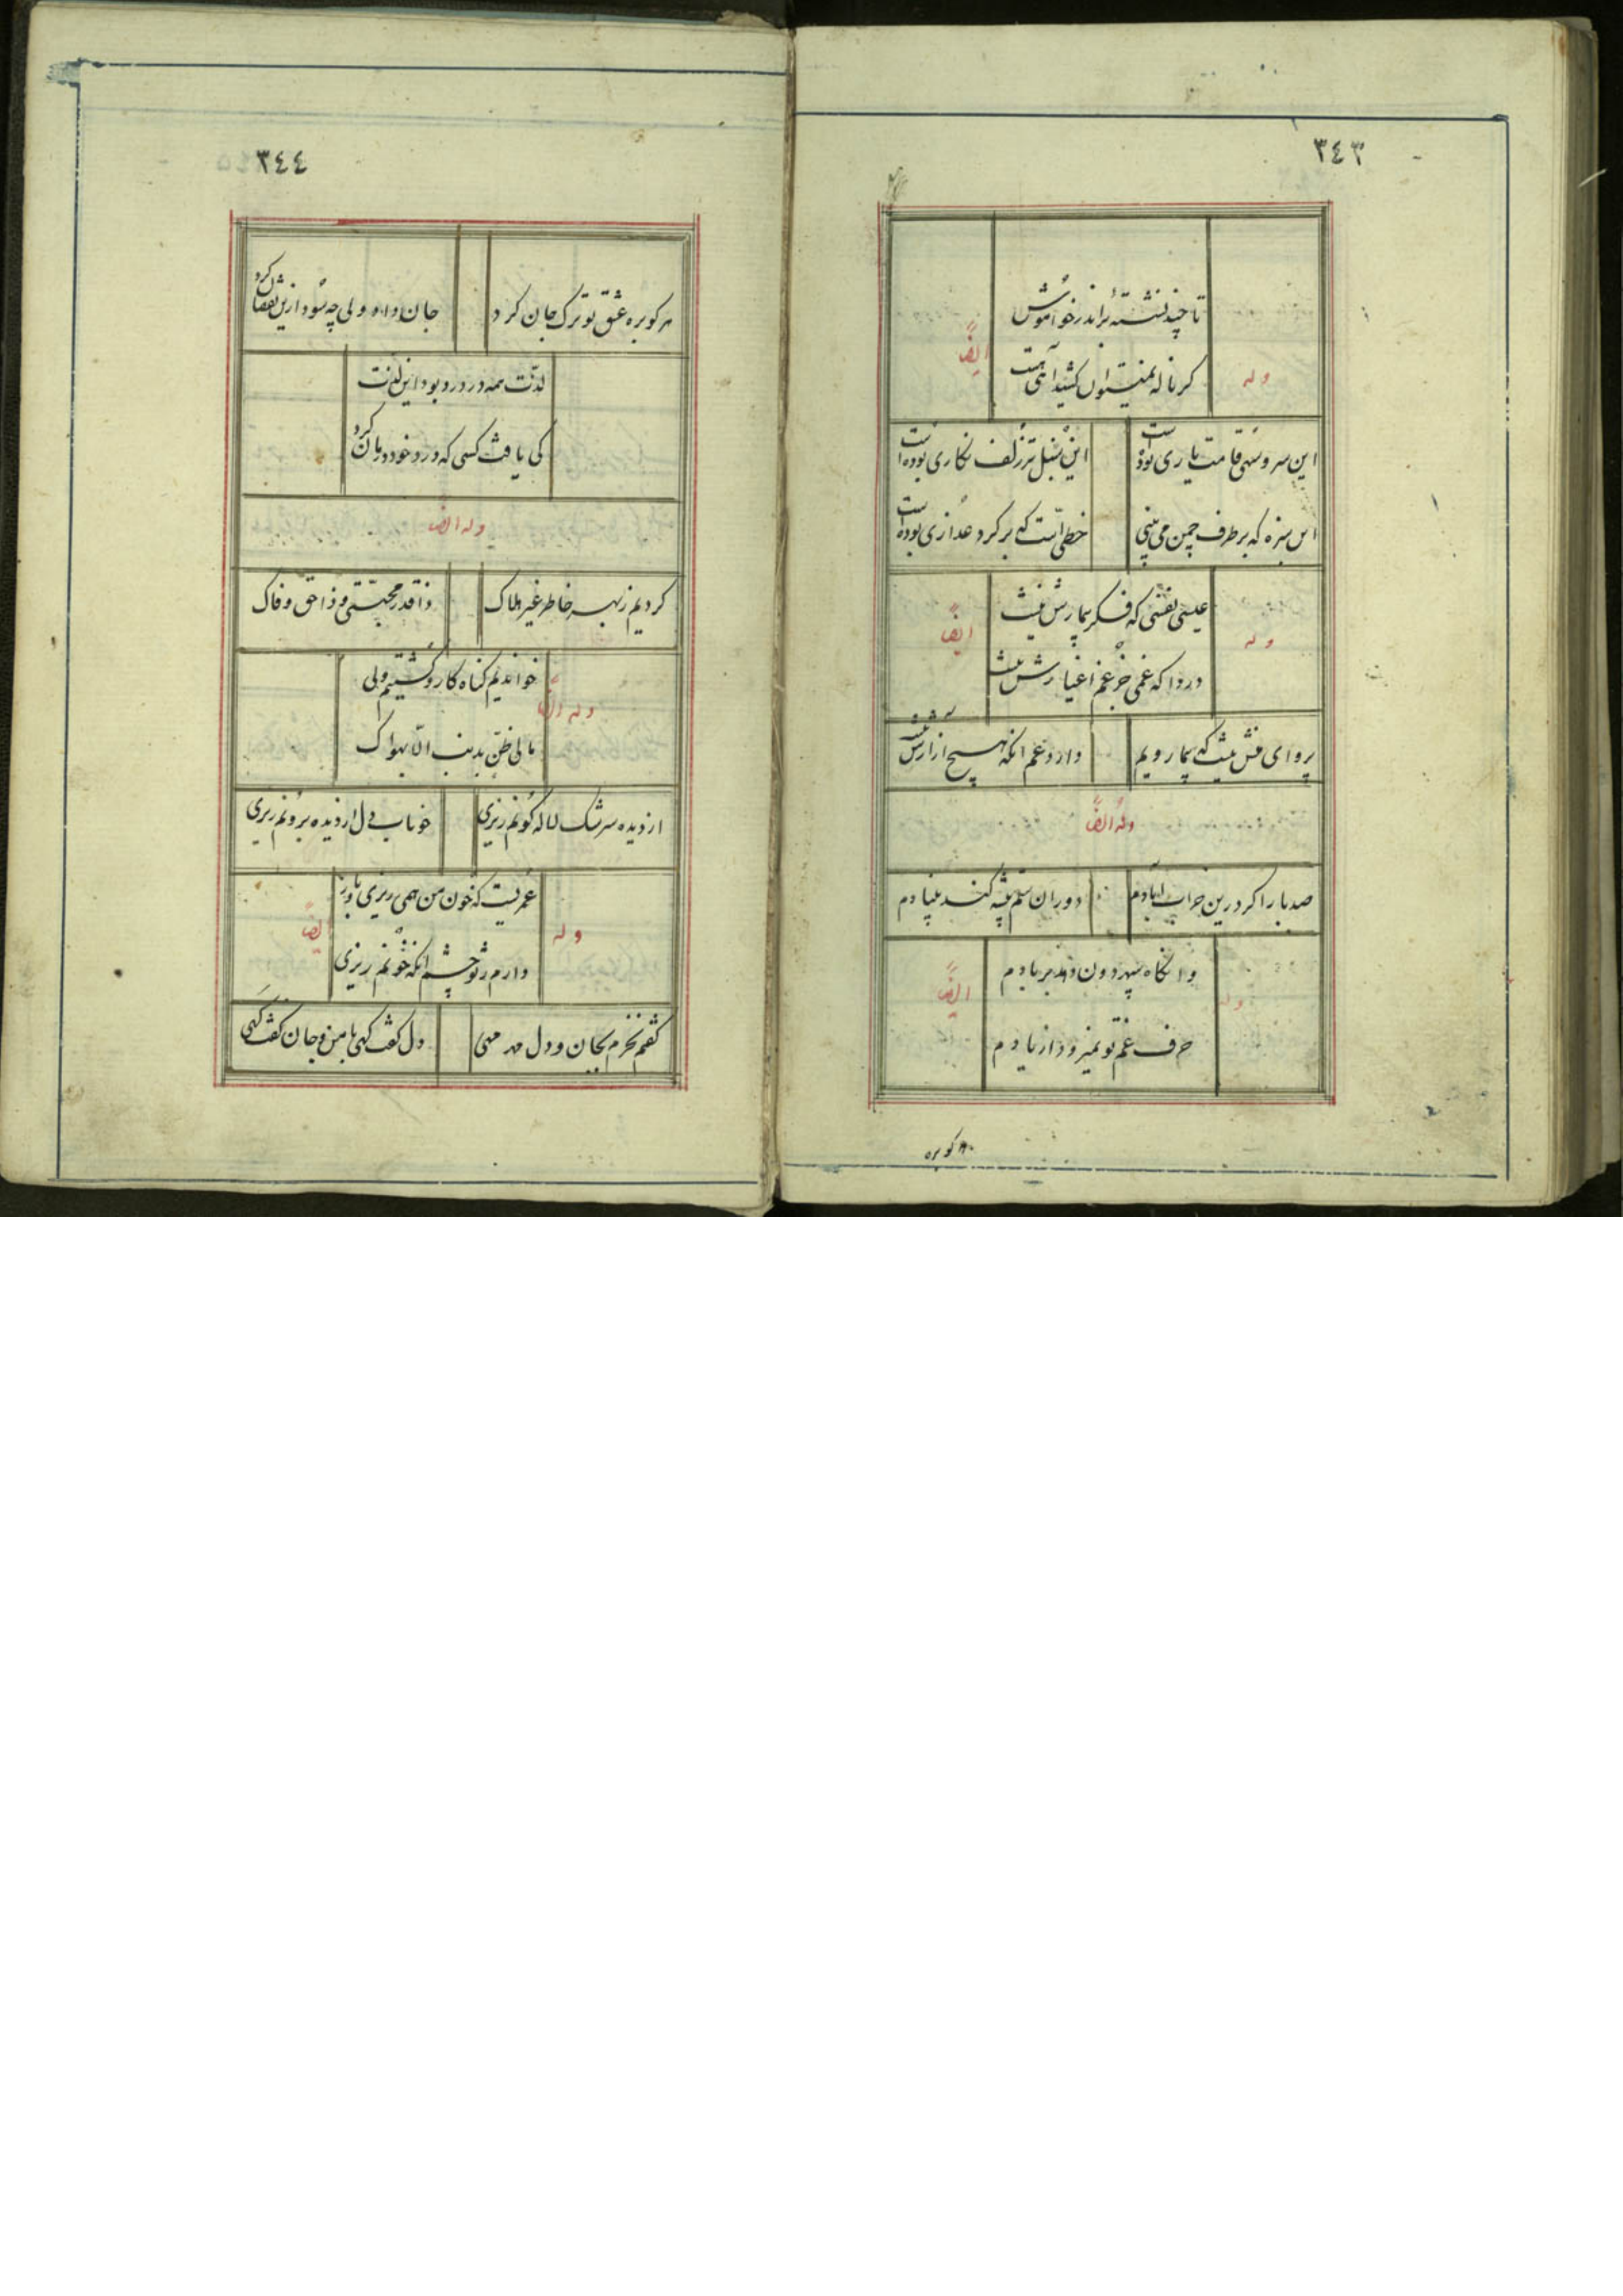 ٣٤٣
تا چند نشسته براندر خواموش
گر ناله نمیتوان کشید آهی هست
وله ایضاً
این سرو سهی قامت یاری بوده است
این سنبل تر زلف نگاری بوده است
این سبزه که بر طرف چمن می بینی
خطی است که بر گرد عذاری بوده است
وله ایضاً
عیسی نفسی که فکر بیمارش نیست
دردا که غمی جز غم اغیارش نیست
پروای منش نیست که بیمار ویم
دارد غم آنکه هیچ ازارش نیست
وله ایضاً
صد بار اگر درین خراب آبادم
دوران ستم پیشه کند بنیادم
وانگاه سپهر دون دهد بر بادم
حرف غم تو نمیرود از یادم
وله ایضاً
هر کو بره
٣٤٤
هر کو بره عشق تو ترک جان کرد
جان داد ولی چه سود ازین نقصان کرد
لذت همه در درد بود این لذت
کی یافت کسی که درد خود درمان کرد
وله ایضاً
کردیم ز بهر خاطر غیر هلاک
ذا قدر محبتی و ذا حق وفاک
خواندیم گناه کار و گشتیم ولی
مالی ظن بذنب الا بهواک
وله ایضاً
از دیده سرشک لاله گونم ریزی
خوناب دل از دیده برونم ریزی
عمریست که خون من همی ریزی باز
دارم ز تو چشم آنکه خونم ریزی
وله ایضاً
گفتم نخرم بجان و دل مهر مهی
دل گفت گهی بامن و جان گفت گهی